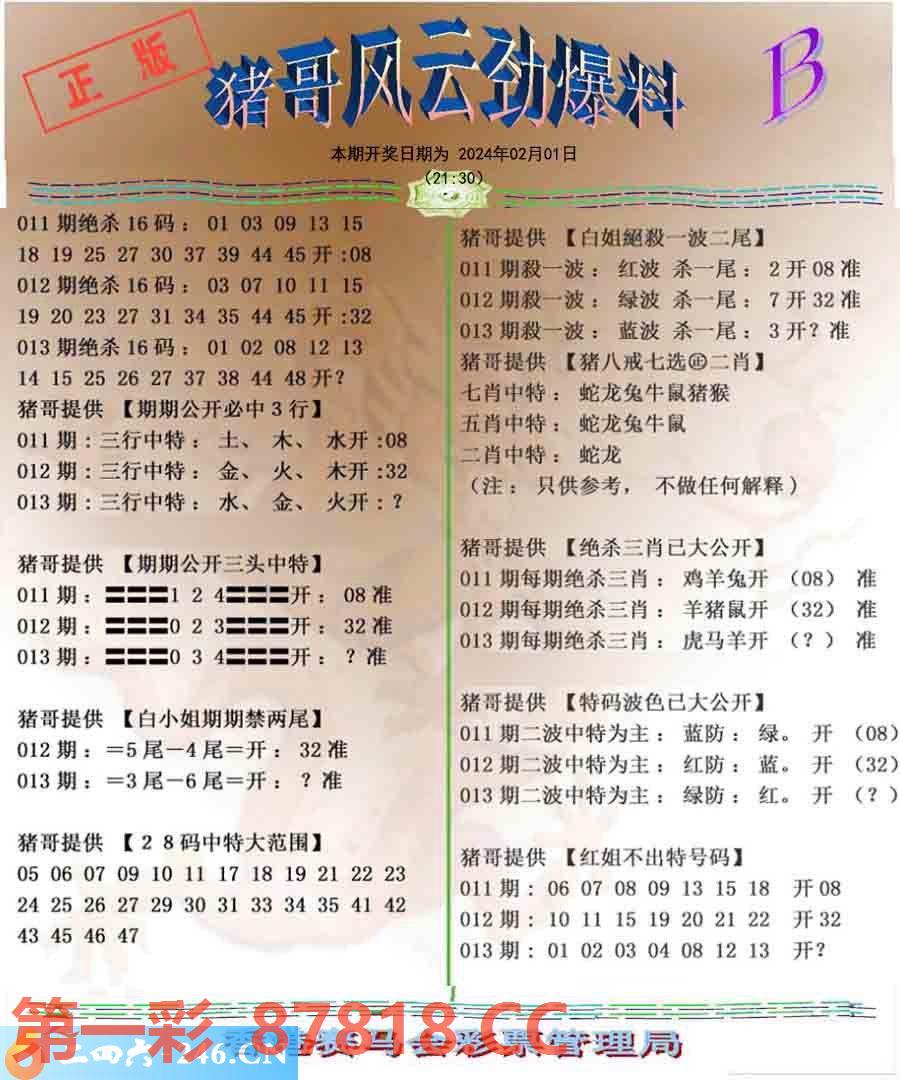 正版
猪哥风云劲爆料
B
本期开奖日期为 2024年02月01日
(21:30)
011期绝杀16码： 01 03 09 13 15
18 19 25 27 30 37 39 44 45开:08
012期绝杀16码： 03 07 10 11 15
19 20 23 27 31 34 35 44 45开:32
013期绝杀16码： 01 02 08 12 13
14 15 25 26 27 37 38 44 48开?
猪哥提供 【期期公开必中3行】
011期:三行中特： 土、 木、 水开:08
012期:三行中特： 金、 火、 木开:32
013期:三行中特： 水、 金、 火开:？
猪哥提供 【期期公开三头中特】
011期：〓〓〓1 2 4〓〓〓开： 08准
012期：〓〓〓0 2 3〓〓〓开： 32准
013期：〓〓〓0 3 4〓〓〓开： ？准
猪哥提供 【白小姐期期禁两尾】
012期：＝5尾－4尾＝开： 32准
013期：＝3尾－6尾＝开： ？准
猪哥提供 【２８码中特大范围】
05 06 07 09 10 11 17 18 19 21 22 23
24 25 26 27 29 30 31 33 34 35 41 42
43 45 46 47
猪哥提供 【白姐絕殺一波二尾】
011期殺一波： 红波 杀一尾： 2开08准
012期殺一波： 绿波 杀一尾： 7开32准
013期殺一波： 蓝波 杀一尾： 3开？准
猪哥提供 【猪八戒七选㊣二肖】
七肖中特： 蛇龙兔牛鼠猪猴
五肖中特： 蛇龙兔牛鼠
二肖中特： 蛇龙
（注： 只供参考， 不做任何解释）
猪哥提供 【绝杀三肖已大公开】
011期每期绝杀三肖： 鸡羊兔开 （08） 准
012期每期绝杀三肖： 羊猪鼠开 （32） 准
013期每期绝杀三肖： 虎马羊开 （？） 准
猪哥提供 【特码波色已大公开】
011期二波中特为主： 蓝防： 绿。 开 （08）
012期二波中特为主： 红防： 蓝。 开 （32）
013期二波中特为主： 绿防： 红。 开 （？）
猪哥提供 【红姐不出特号码】
011期: 06 07 08 09 13 15 18 开08
012期: 10 11 15 19 20 21 22 开32
013期: 01 02 03 04 08 12 13 开?
第一彩 87818.CC
二四六 246.CN
香港赛马会彩票管理局